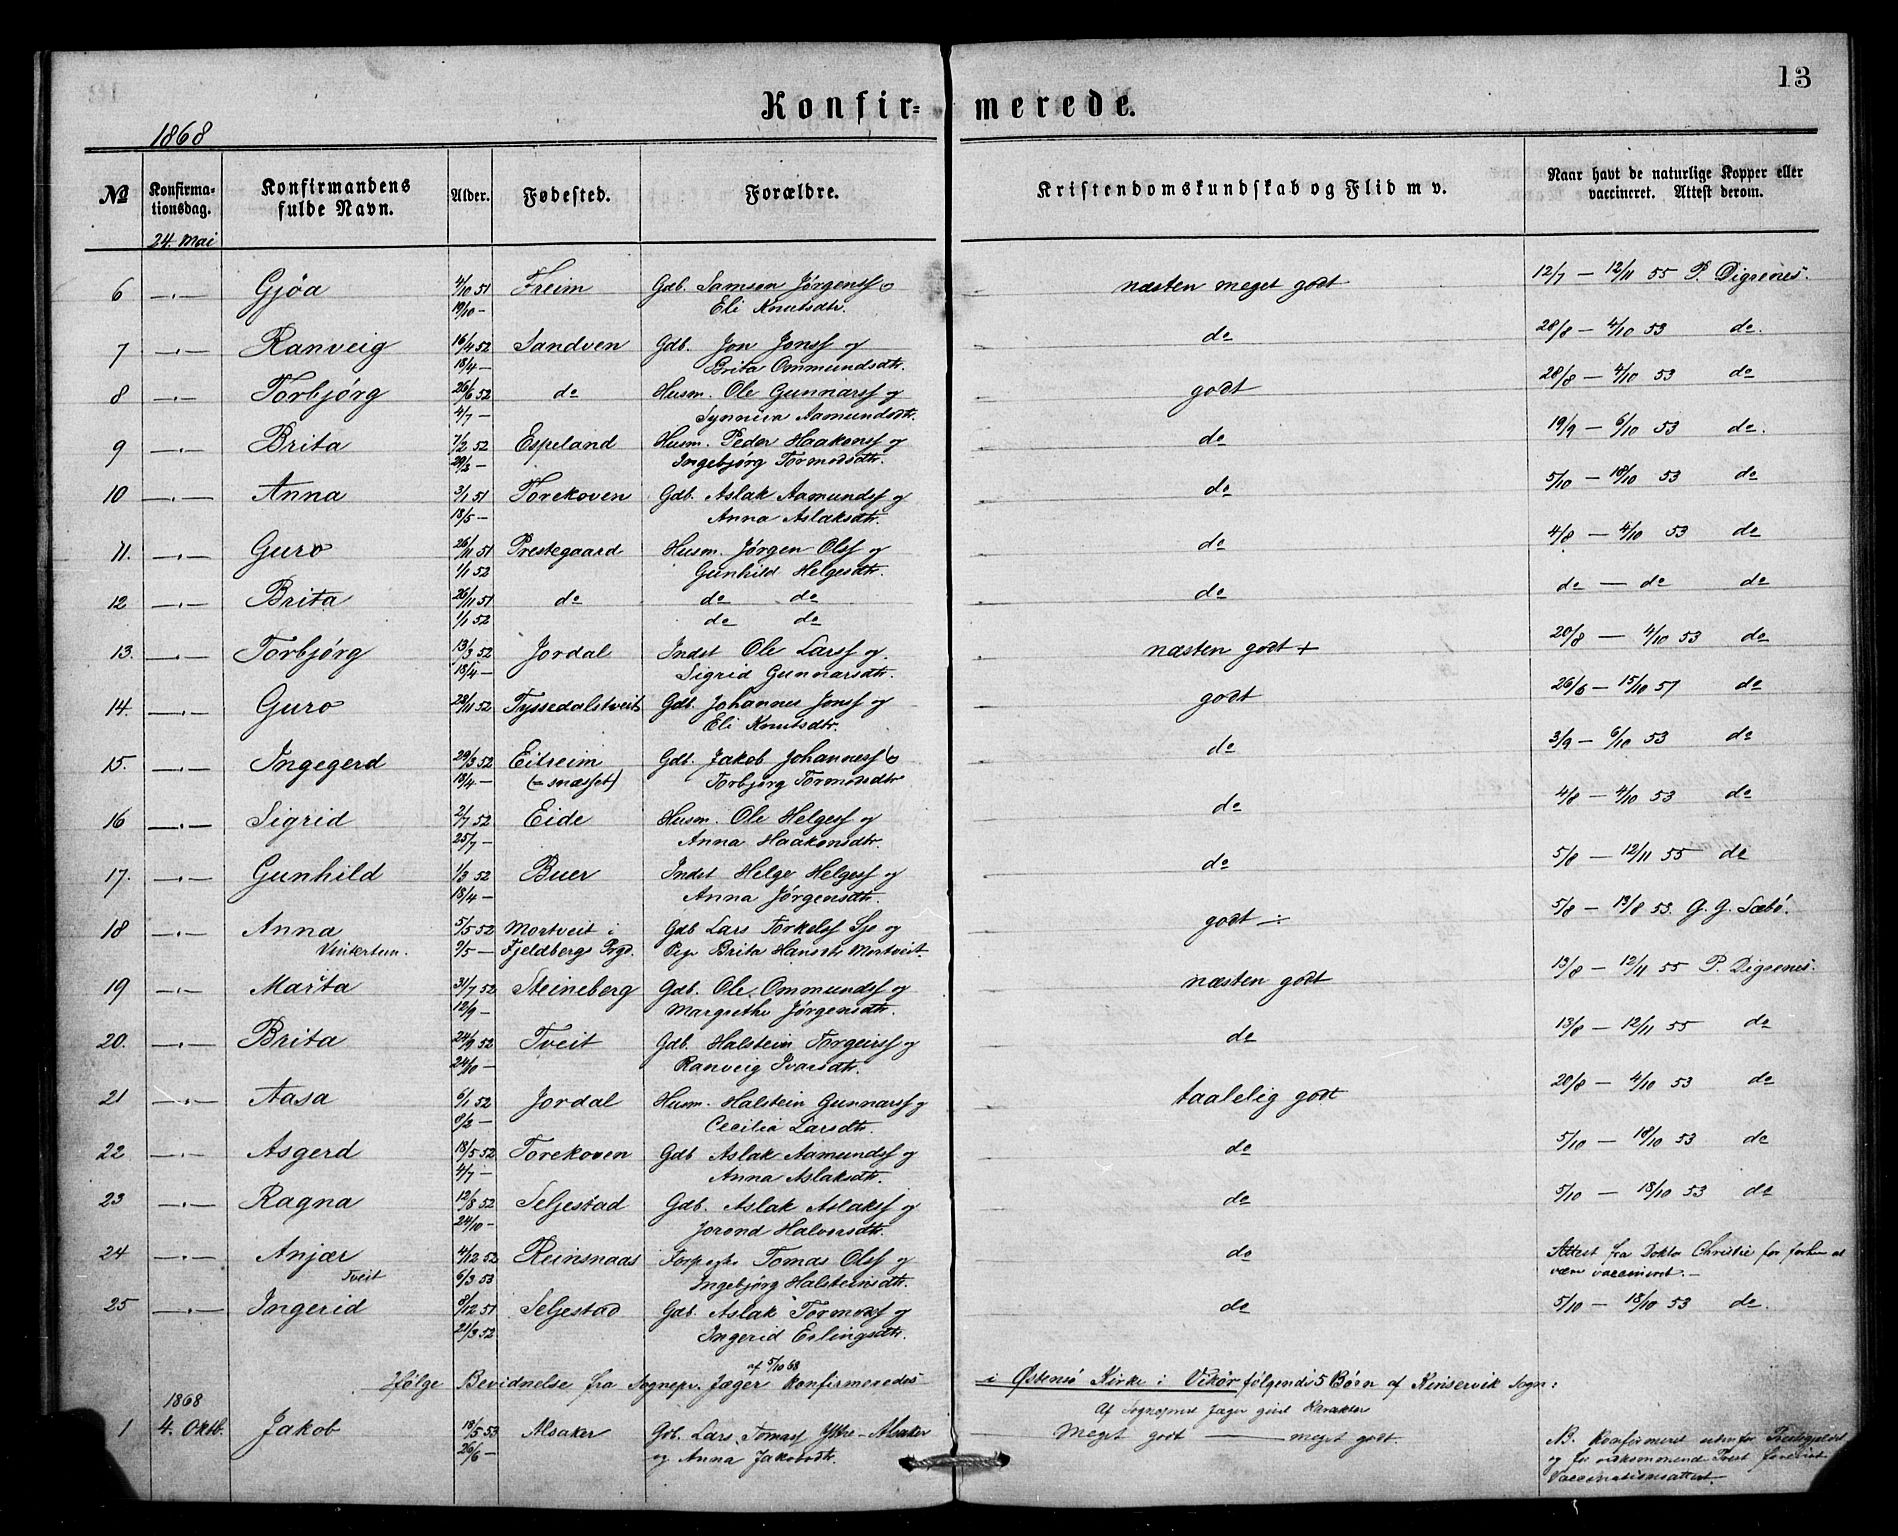 13
Konfir-merede.
1868
No
Konfirma-tionsdag.
Konfirmandens fulde Navn.
Alder.
Fødested.
Forældre.
Kristendomskundskab og Flid m v.
Naar havt de naturlige Kopper eller vaccineret. Attest derom.
24. Mai
6 —.— Gjøa 4/10 51 Freim Gdb. Samson Jørgenss o næsten meget godt 12/7 — 12/11 55 P. Digrenes.
19/10 – Eli Knutsdtr.
7 —.— Ranveig 16/4 52 Sandven Gdb. Jon Jonss og do 28/8 — 4/10 53 do.
18/4 – Brita Ommundsdtr.
8 —.— Torbjørg 26/6 52 do Husm. Ole Gunnarss og godt 28/8 — 4/10 53 do
4/7 – Synneva Aamundsdtr.
9 —.— Brita 7/2 52 Espeland Husm. Peder Haakonss og do 19/9 — 6/10 53 do.
29/2 – Ingebjørg Tormodsdtr.
10 —.— Anna 3/1 51 Torekoven Gdb. Aslak Aamundss og do 5/10 — 18/10 53 do
18/5 – Anna Aslaksdtr.
11. —.— Guro 26/11 51 Prestegaard Husm. Jørgen Olss og do 4/8 — 4/10 53 do
1/1 52 Gunhild Helgesdtr.
12 —.— Brita 26/11 51 do do do do do — do do
1/1 52 do do
13. —.— Torbjørg 13/3 52 Jordal Indst Ole Larss og næsten godt + 20/8 — 4/10 53 do
18/4 – Sigrid Gunnarsdtr.
14. —.— Guro 28/11 52 Tyssedalstveit Gdb. Johannes Jonss og godt 26/6 — 15/10 57 do
Eli Knutsdtr.
15. —.— Ingegerd 29/3 52 Eitreim Gdb. Jakob Johanness o do 3/9 — 6/10 53 do
18/4 – Torbjørg Tormodsdtr
16 —.— Sigrid 2/7 52 Eide Husm. Ole Helgess og do 4/8 — 4/10 53 do
25/7 – Anna Haakonsdtr.
17. —.— Gunhild 1/3 52 Buer Indst Helge Helgess og do 5/8 — 12/11 55 do
18/4 – Anna Jørgensdtr.
18 —.— Anna 5/5 52 Mortveit i Gdb Lars Torkelss og godt ÷ 5/8 — 13/8 53. G. G. Sæbø.
9/5 – Fjeldbergs Pgd. Pige Brita Hansdtr Mortveit.
19 —.— Marta 31/7 52 Steineberg Gdb. Ole Ommundss og næsten godt 13/8 — 12/11 55 P. Digrenes.
12/9 – Margrethe Jørgensdtr.
20. —.— Brita 24/9 52 Tveit Gdb. Halstein Torgeirss og do 13/8 — 12/11 55 do
24/10 – Ranveig Ivarsdtr.
21 —.— Aasa 6/1 52 Jordal Husm. Halstein Gunnarss og taalelig godt 20/8 — 4/10 53 do
8/2 – Cecilia Larsdtr.
22 —.— Asgerd 18/5 52 Torekoven Gdb Aslak Aamundss og do 5/10 — 18/10 53 do
4/7 – Anna Aslaksdtr.
23 —.— Ragna 12/8 52 Seljestad Gdb. Aslak Aslakss og do 5/10 — 18/10 53 do
24/10 – Jorond Halvorsdtr.
24 —.— Anjær 4/12 52 Reinsnaas Tomas Olss og do Attest fra Doktor Christie for forhen at
Tveit 6/3 53 Ingebjørg Halsteinsdtr. være vaccineret. –
25 —.— Ingerid 8/12 51 Seljestad Gdb. Aslak Tormodss og do 5/10 — 18/10 53 do.
21/3 52 Ingerid Erlingsdtr.
af 5/10 68
Ifølge Bevidnelse fra Sognepr. Jæger konfirmeredes i Østensø Kirke i Vikør følgende 5 Børn af Kinservik Sogn:
1868 Af Sognepræst Jæger givet Karakter
1 4. Oktb. Jakob 18/5 53 Alsaker Gdb. Lars Tomass Ytre-Alsaker Meget godt — meget godt. NB. Konfirmeret udenfor Prestegjeldet
26/6 – og Anna Jakobsdtr. og for vedkommende Prest forevist
Vaccinationsattest.